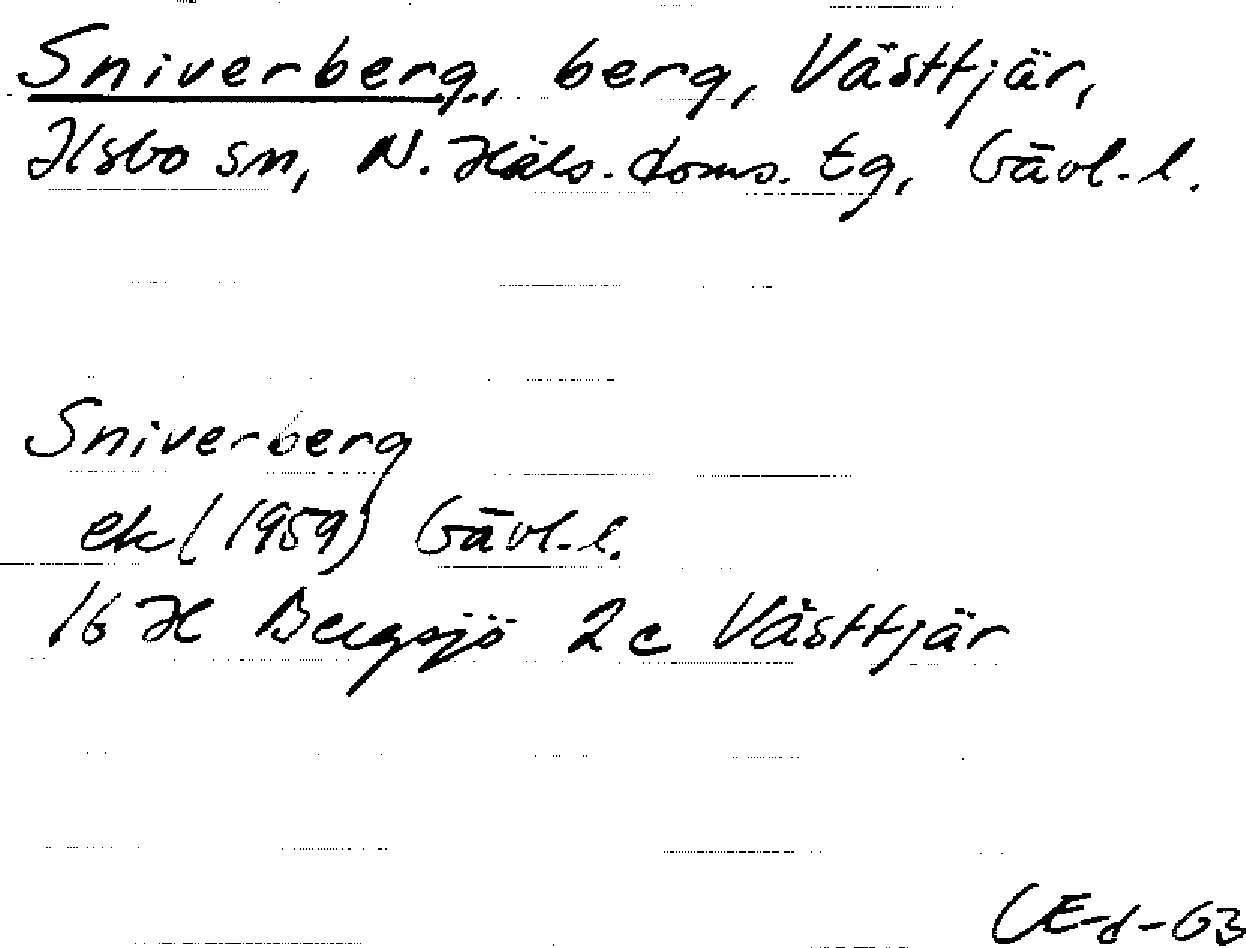 Sniverberg, berg, Västtjär,
Ilsbo sn, N. Häls. doms. tg, Gävl. l.
Sniverberg
ek (1959) Gävl. l.
16 H Bergsjö 2c Västtjär